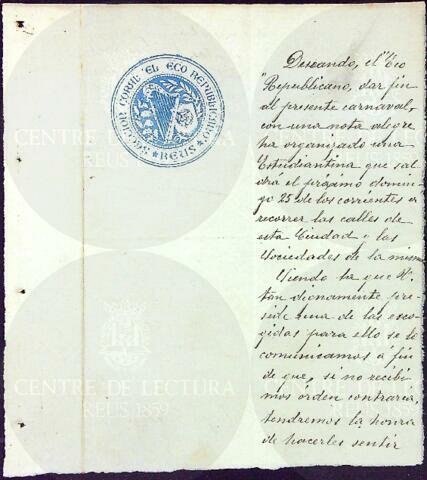 SECCION CORAL "EL ECO REPUBLICANO"
* REUS *
Deseando, el "Eco
Republicano, dar fin
al presente carnaval,
con una nota alegre
ha organizado una
Estudiantina que sal
dra el próximo domin
go 25 de los corrientes a
recorrer las calles de
esta Ciudad y las
Sociedades de la misma
Siendo la que V.
tan dignamente pre
side una de las esco
gidas para ello se lo
comunicamos á fin
de que, si no recibi
mos orden contraria,
tendremos la honra
de hacerles sentir
CENTRE DE LECTURA
REUS 1859
CENTRE DE LECTURA
REUS 1859